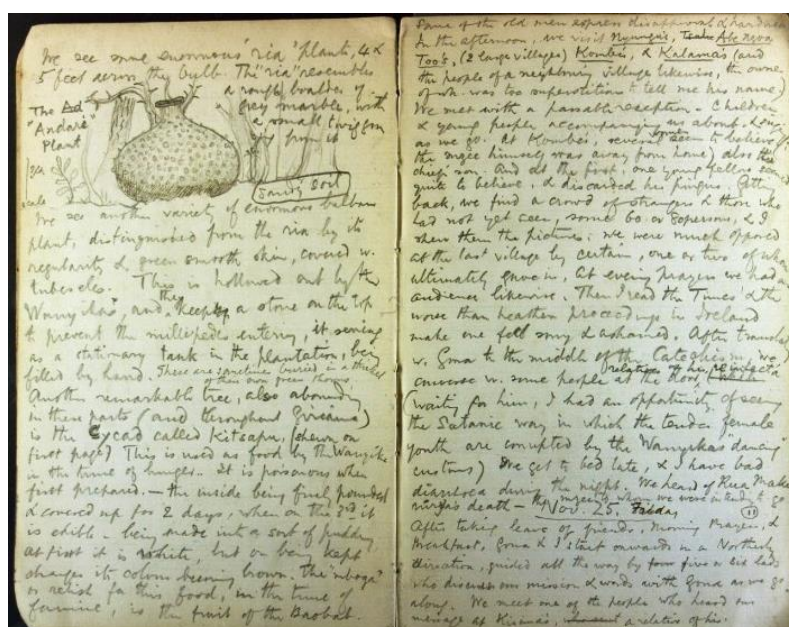 We see some enormous 'ria' plants, 4 &
5 feet across the bulb. The "ria" resembles
a rough boulder of
grey marble, with
a small twig grown
from it
The
"Andarè"
Plant
Sandy Soil
We see another variety of enormous bulbous
plant, distinguished from the ria by its
regularity & green smooth skin, covered w.
tubercles. This is hollowed out by the
Wanyikas, and they keep a stone on the top
to prevent the millipedes entering, it serving
as a stationary tank in the plantation, being
filled by hand. These are sometimes buried in a thicket
of their own green thorns.
Another remarkable tree, also abounding
in these parts (and throughout Giriama)
is the Cycad called Kitsapu, (shewn on
first page) This is used as food by the Wanyika
in the time of hunger. It is poisonous when
first prepared. — the inside being first pounded
& covered up for 2 days, when on the 3rd it
is edible - being made into a sort of pudding,
at first it is white, but on being kept
changes its colour becoming brown. The "mboga"
or relish for this food, in the time of
famine, is the fruit of the Baobab.
Some of the old men express disapproval & hardness
In the afternoon, we visit Nyungu's, Abe Ngoa
Too's, (2 large villages) Kombe's, & Kalama's (and
the people of a neighbouring village likewise, the owner
of wh. was too superstitious to tell me his name)
We met with a passable reception - Children
& young people accompanying us about, & sing
as we go. At Kombe's, several seem to believe
(the mzee himself was away from home) also the
chief's son. And at the first, one young fellow seemed
quite to believe, & discarded his pingus. Getting
back, we find a crowd of strangers & those who
had not yet seen, some 60 or 80 persons, & I
shew them the pictures: we were much opposed
at the last village by certain, one or two of whom
ultimately gave in. At evening prayers we had an
audience likewise. Then I read the Times & the
worse than heathen proceedings in Ireland
make one feel sorry & ashamed. After translating
w. Gona to the middle of the Catechism, we
converse w. some people at the door,
(waiting for him, I had an opportunity of seeing
the Satanic way in which the tender female
youth are corrupted by the Wanyikas' dancing
customs) We get to bed late, & I have bad
diarrhoea during the night. We heard of
death - the mzee to whom we were intending to go
Nov. 25. Friday (11)
After taking leave of friends, Morning Prayer, &
Breakfast, Gona & I start onwards in a Northerly
direction, guided all the way by four five or six lads
who discuss our mission & words with Gona as we go
along. We meet one of the people who heard our
message at a relative of his.